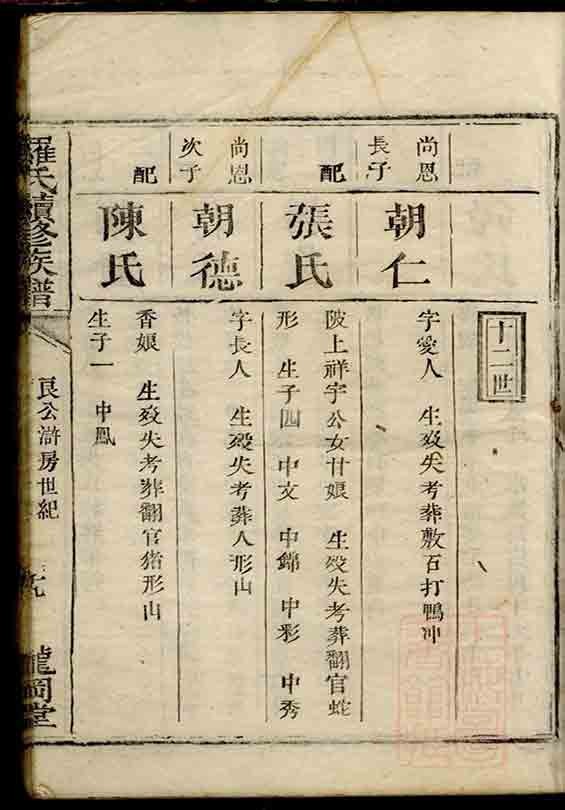 十二世
尚恩
長子
朝仁
字愛人 生殁失考葬敷石打鴨冲
配
張氏
陂上祥宇公女甘娘 生殁失考葬翻官蛇
形 生子四 中文 中錦 中彩 中秀
尚恩
次子
朝德
字長人 生殁失考葬人形山
配
陳氏
香娘 生殁失考葬翻官猪形山
生子一 中鳳
羅氏續修族譜
良公滸房世紀
龍岡堂